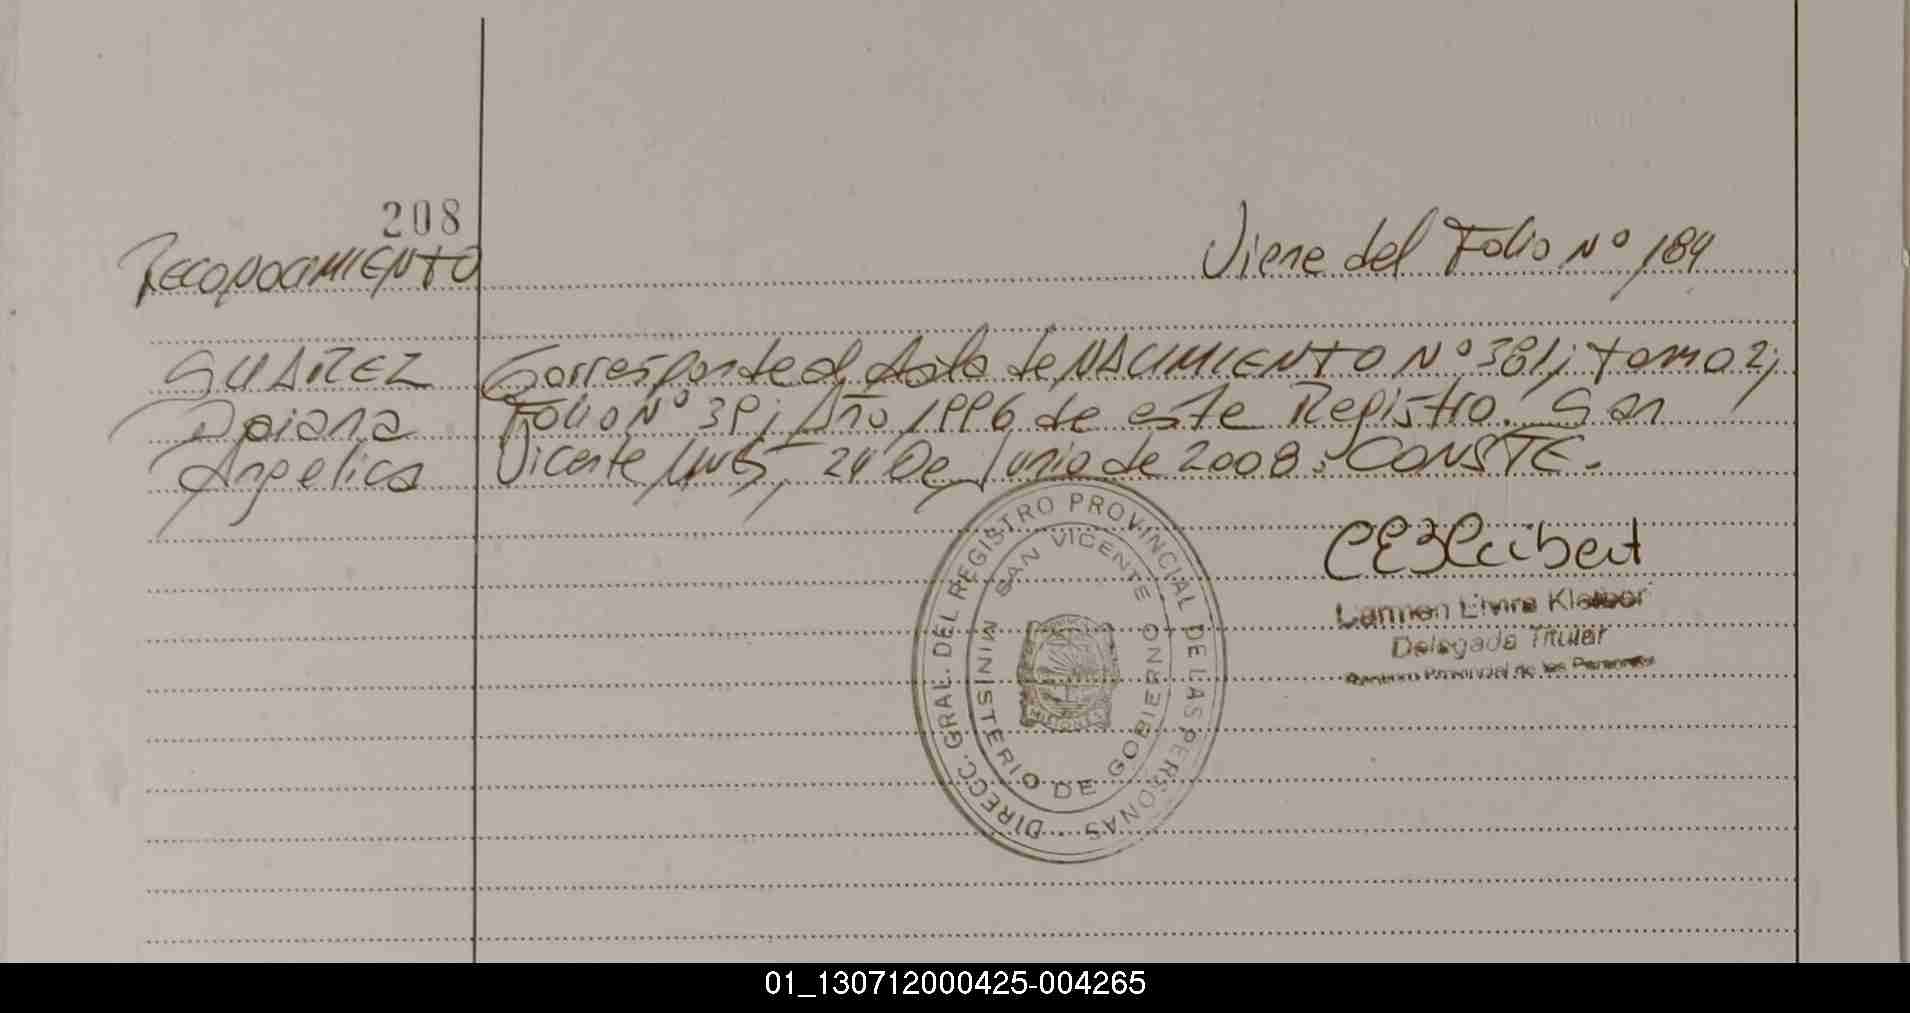 208
Reconocimiento
Viene del Folio Nº 184
SUAREZ
Corresponde al Acta de NACIMIENTO Nº 381; Tomo 2;
Daiana
Folio Nº 39; Año 1996 de este Registro. San
Angelica
Vicente, Mnes, 24 De Junio de 2008. CONSTE.
DIRECC. GRAL. DEL REGISTRO PROVINCIAL DE LAS PERSONAS
SAN VICENTE
MINISTERIO DE GOBIERNO
MISIONES
Carmen Elvira Kleiber
Delegada Titular
Registro Provincial de las Personas
01_130712000425-004265